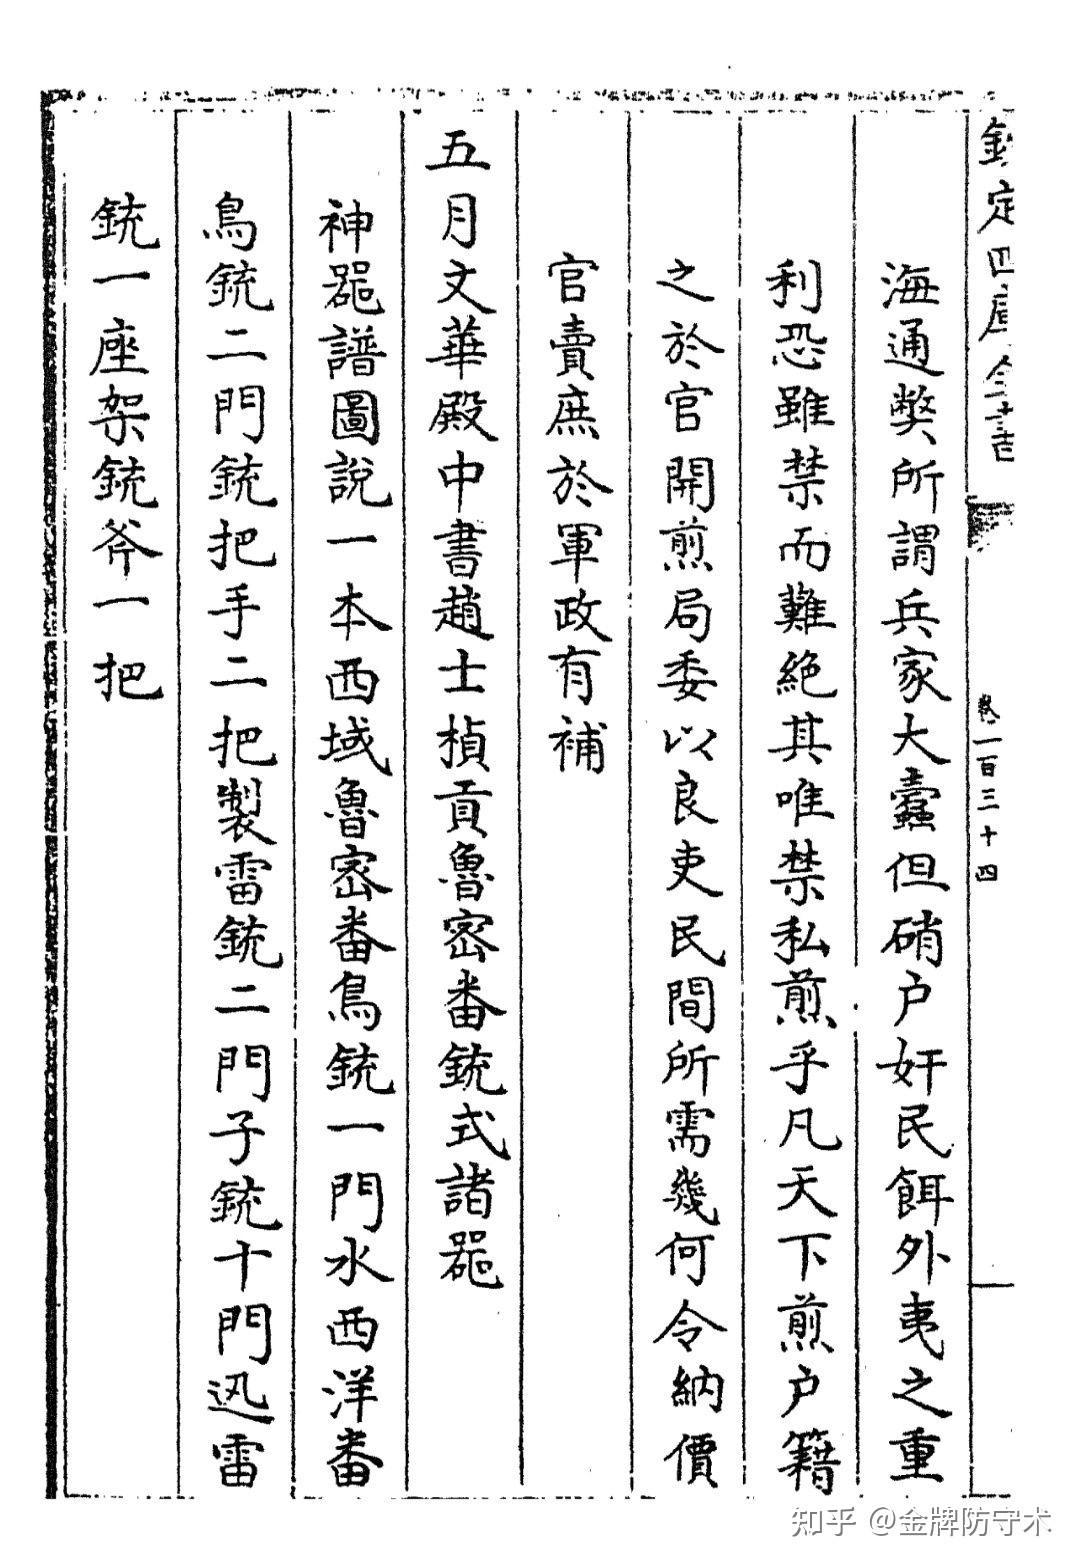 欽定四庫全書
卷一百三十四
海通獘所謂兵家大蠧但硝户奸民餌外夷之重
利恐雖禁而難絶其唯禁私煎乎凡天下煎户籍
之於官開煎局委以良吏民間所需幾何令納價
官賣庶於軍政有補
五月文華殿中書趙士楨貢魯宻番銃式諸噐
神噐譜圖說一本西域魯宻番鳥銃一門水西洋番
鳥銃二門銃把手二把製雷銃二門子銃十門迅雷
銃一座架銃斧一把
知乎 @金牌防守术